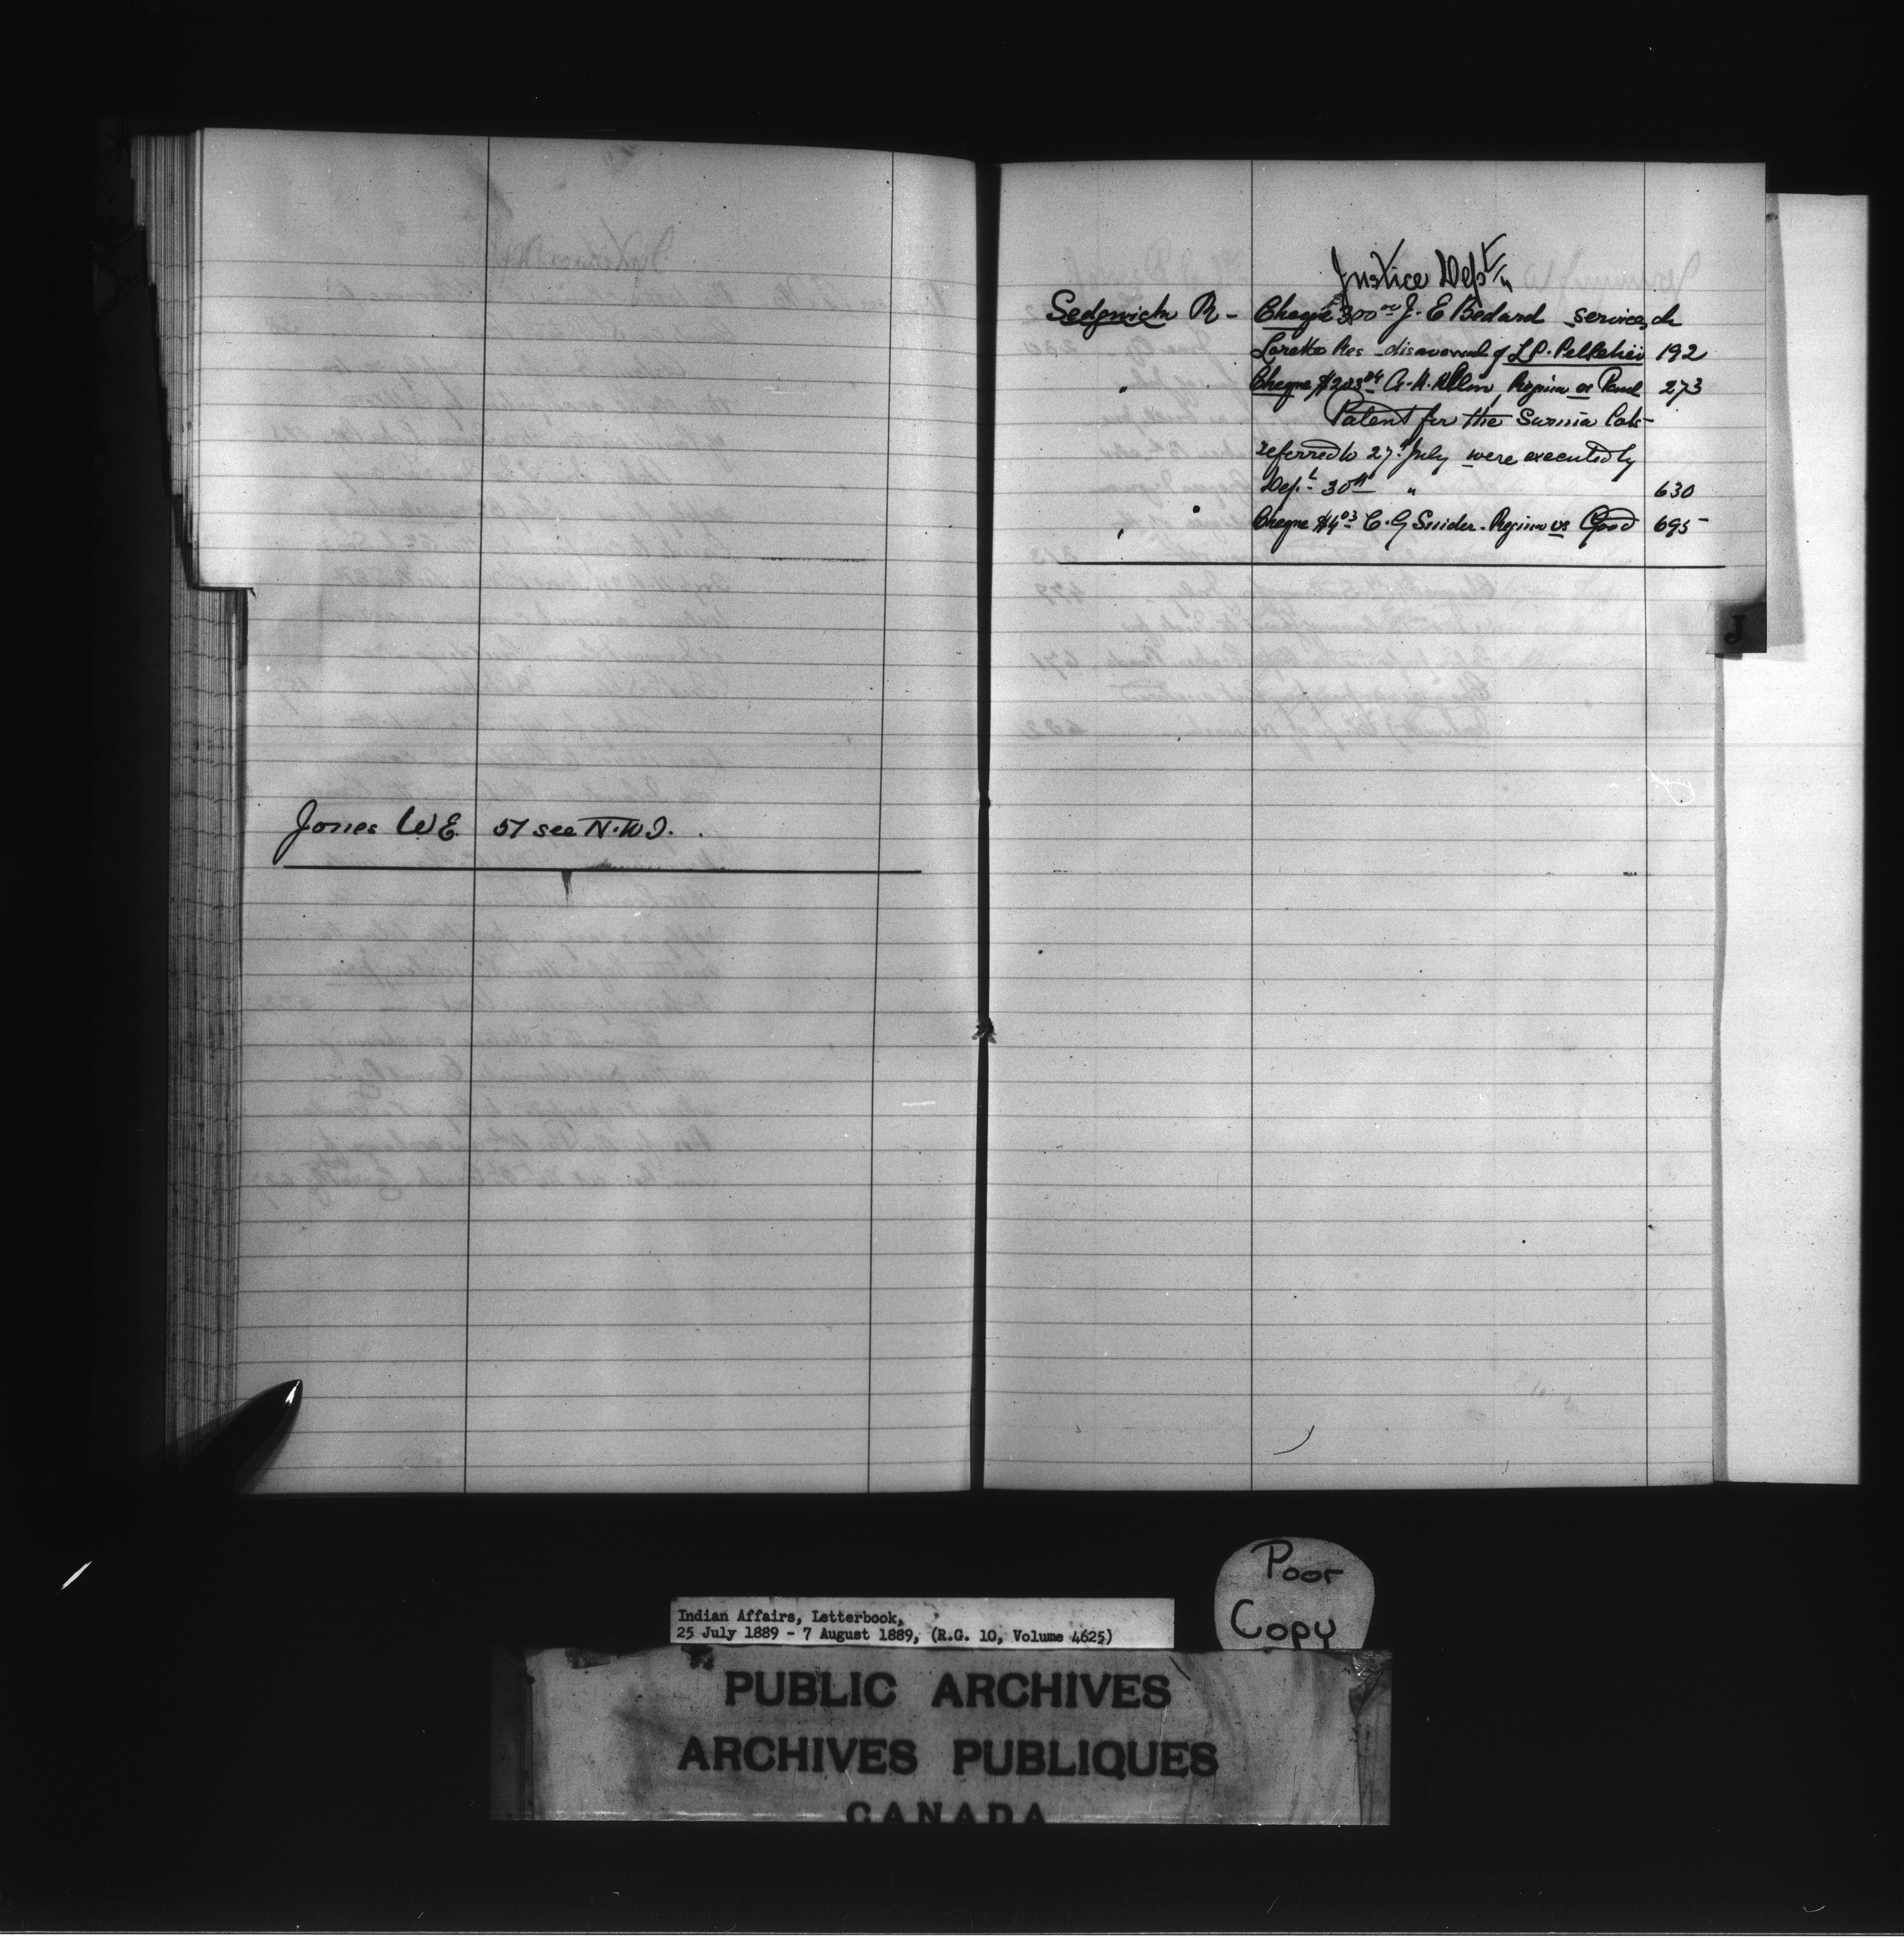 Jones W E 57 see N.W.T.
Justice Dept
Sedgwick R - Cheque 300.00 J. E Bedard services ch
Lorette Res - disavowal of L P. Pelletier 192
" Cheque $203.04 A. H. Regina vs Paul 273
Patent for the Sarnia Lots
referred to 27th July were executed by
Dept 30th " 630
" " Cheque $4.03 C. G Snider. Regina vs Good 695
J
Poor
Copy
Indian Affairs, Letterbook,
25 July 1889 - 7 August 1889, (R.G. 10, Volume 4625)
PUBLIC ARCHIVES
ARCHIVES PUBLIQUES
CANADA